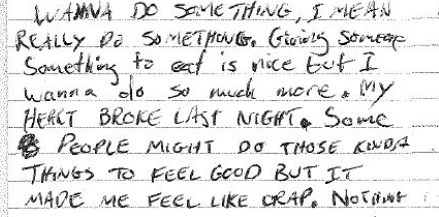 WANNA DO SOMETHING, I MEAN
REALLY DO SOMETHING. Giving Someone
Something to eat is nice but I
wanna do so much more. My
HEART BROKE LAST NIGHT. Some
PEOPLE MIGHT DO THOSE KINDA
THINGS TO FEEL GOOD BUT IT
MADE ME FEEL LIKE CRAP. NOTHING